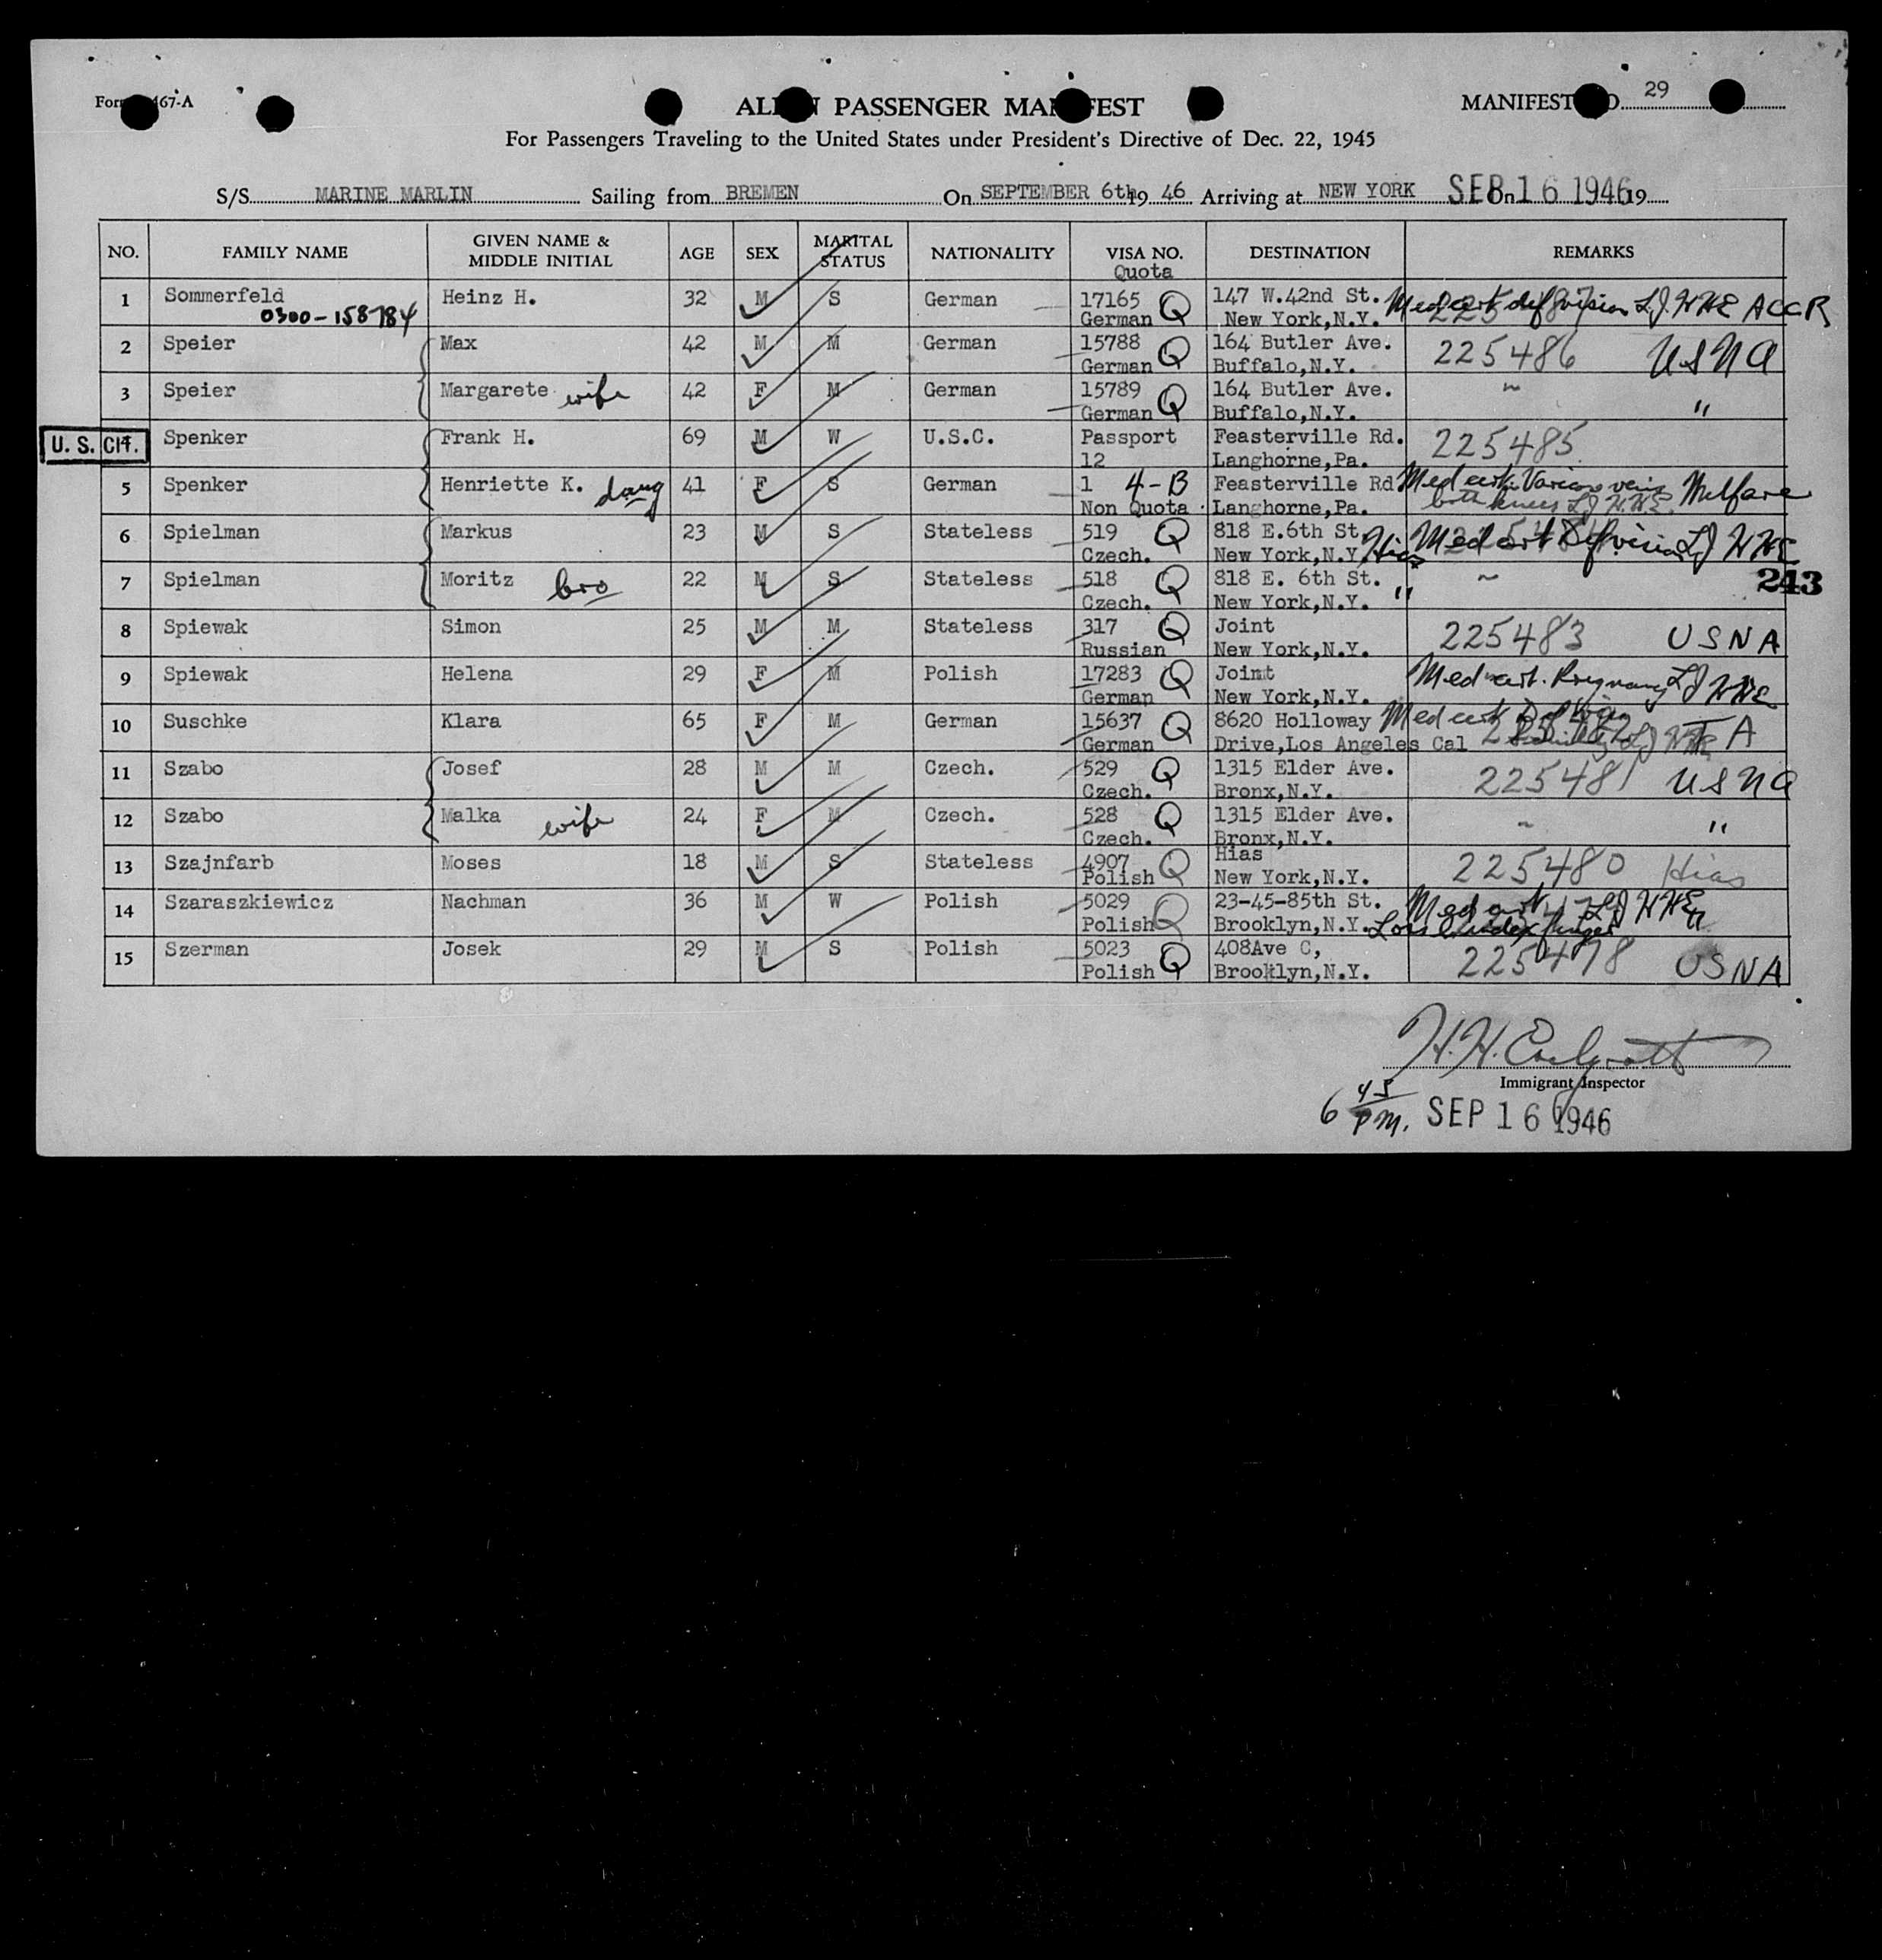 Form 467-A
ALIEN PASSENGER MANIFEST
MANIFEST NO. 29
For Passengers Traveling to the United States under President's Directive of Dec. 22, 1945
S/S MARINE MARLIN Sailing from BREMEN On SEPTEMBER 6th 19 46 Arriving at NEW YORK On SEP 16 1946 19
NO. FAMILY NAME GIVEN NAME & MIDDLE INITIAL AGE SEX MARITAL STATUS NATIONALITY VISA NO. Quota DESTINATION REMARKS
1 Sommerfeld Heinz H. 32 M S German 17165 Q 147 W.42nd St. Med cert def vision L.J. HHE ACCR
0300-158784 German New York,N.Y.
2 Speier Max 42 M M German 15788 Q 164 Butler Ave. 225486 USNA
German Buffalo,N.Y.
3 Speier Margarete wife 42 F M German 15789 Q 164 Butler Ave. ~ "
German Buffalo,N.Y.
U.S. CIT. 4 Spenker Frank H. 69 M W U.S.C. Passport Feasterville Rd. 225485
12 Langhorne,Pa.
5 Spenker Henriette K. daug 41 F S German 1 4-B Feasterville Rd Med cert. Varicose veins Welfare
Non Quota Langhorne,Pa. both knees LJ H.H.E.
6 Spielman Markus 23 M S Stateless 519 Q 818 E.6th St. Med cert Def vision LJ HHE
Czech. New York,N.Y. Hias
7 Spielman Moritz bro 22 M S Stateless 518 Q 818 E. 6th St. " ~ 243
Czech. New York,N.Y.
8 Spiewak Simon 25 M M Stateless 317 Q Joint 225483 USNA
Russian New York,N.Y.
9 Spiewak Helena 29 F M Polish 17283 Q Joint Med cert. Pregnancy LJ HHE
German New York,N.Y.
10 Suschke Klara 65 F M German 15637 Q 8620 Holloway Med cert TA
German Drive,Los Angeles Cal
11 Szabo Josef 28 M M Czech. 529 Q 1315 Elder Ave. 225481 USNA
Czech. Bronx,N.Y.
12 Szabo Malka wife 24 F M Czech. 528 Q 1315 Elder Ave. ~ "
Czech. Bronx,N.Y.
13 Szajnfarb Moses 18 M S Stateless 4907 Q Hias 225480 Hias
Polish New York,N.Y.
14 Szaraszkiewicz Nachman 36 M W Polish 5029 Q 23-45-85th St. Med cert LJ HHE
Polish Brooklyn,N.Y. Loss index finger
15 Szerman Josek 29 M S Polish 5023 Q 408Ave C, 225478 USNA
Polish Brooklyn,N.Y.
Immigrant Inspector
6 45 PM. SEP 16 1946